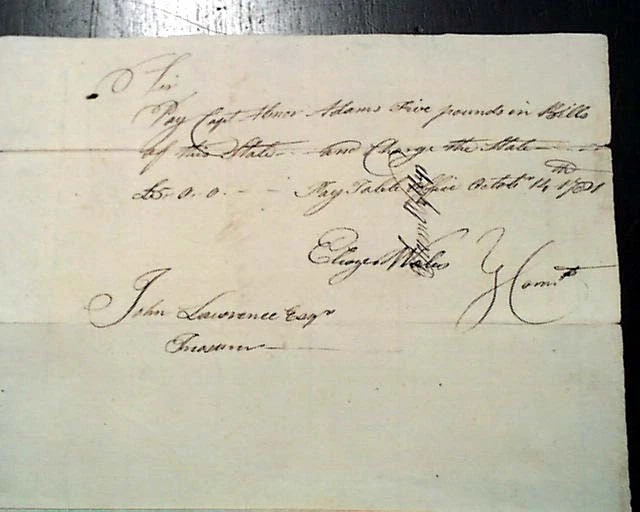 Sir
Pay Capt Abner Adams Five pounds in Bills
of this State and Charge the State
£5. 0. 0. Pay Table Office Octobr 14th 1781
Eleazr Wales } Comtee
John Lawrence Esqr
Treasurer